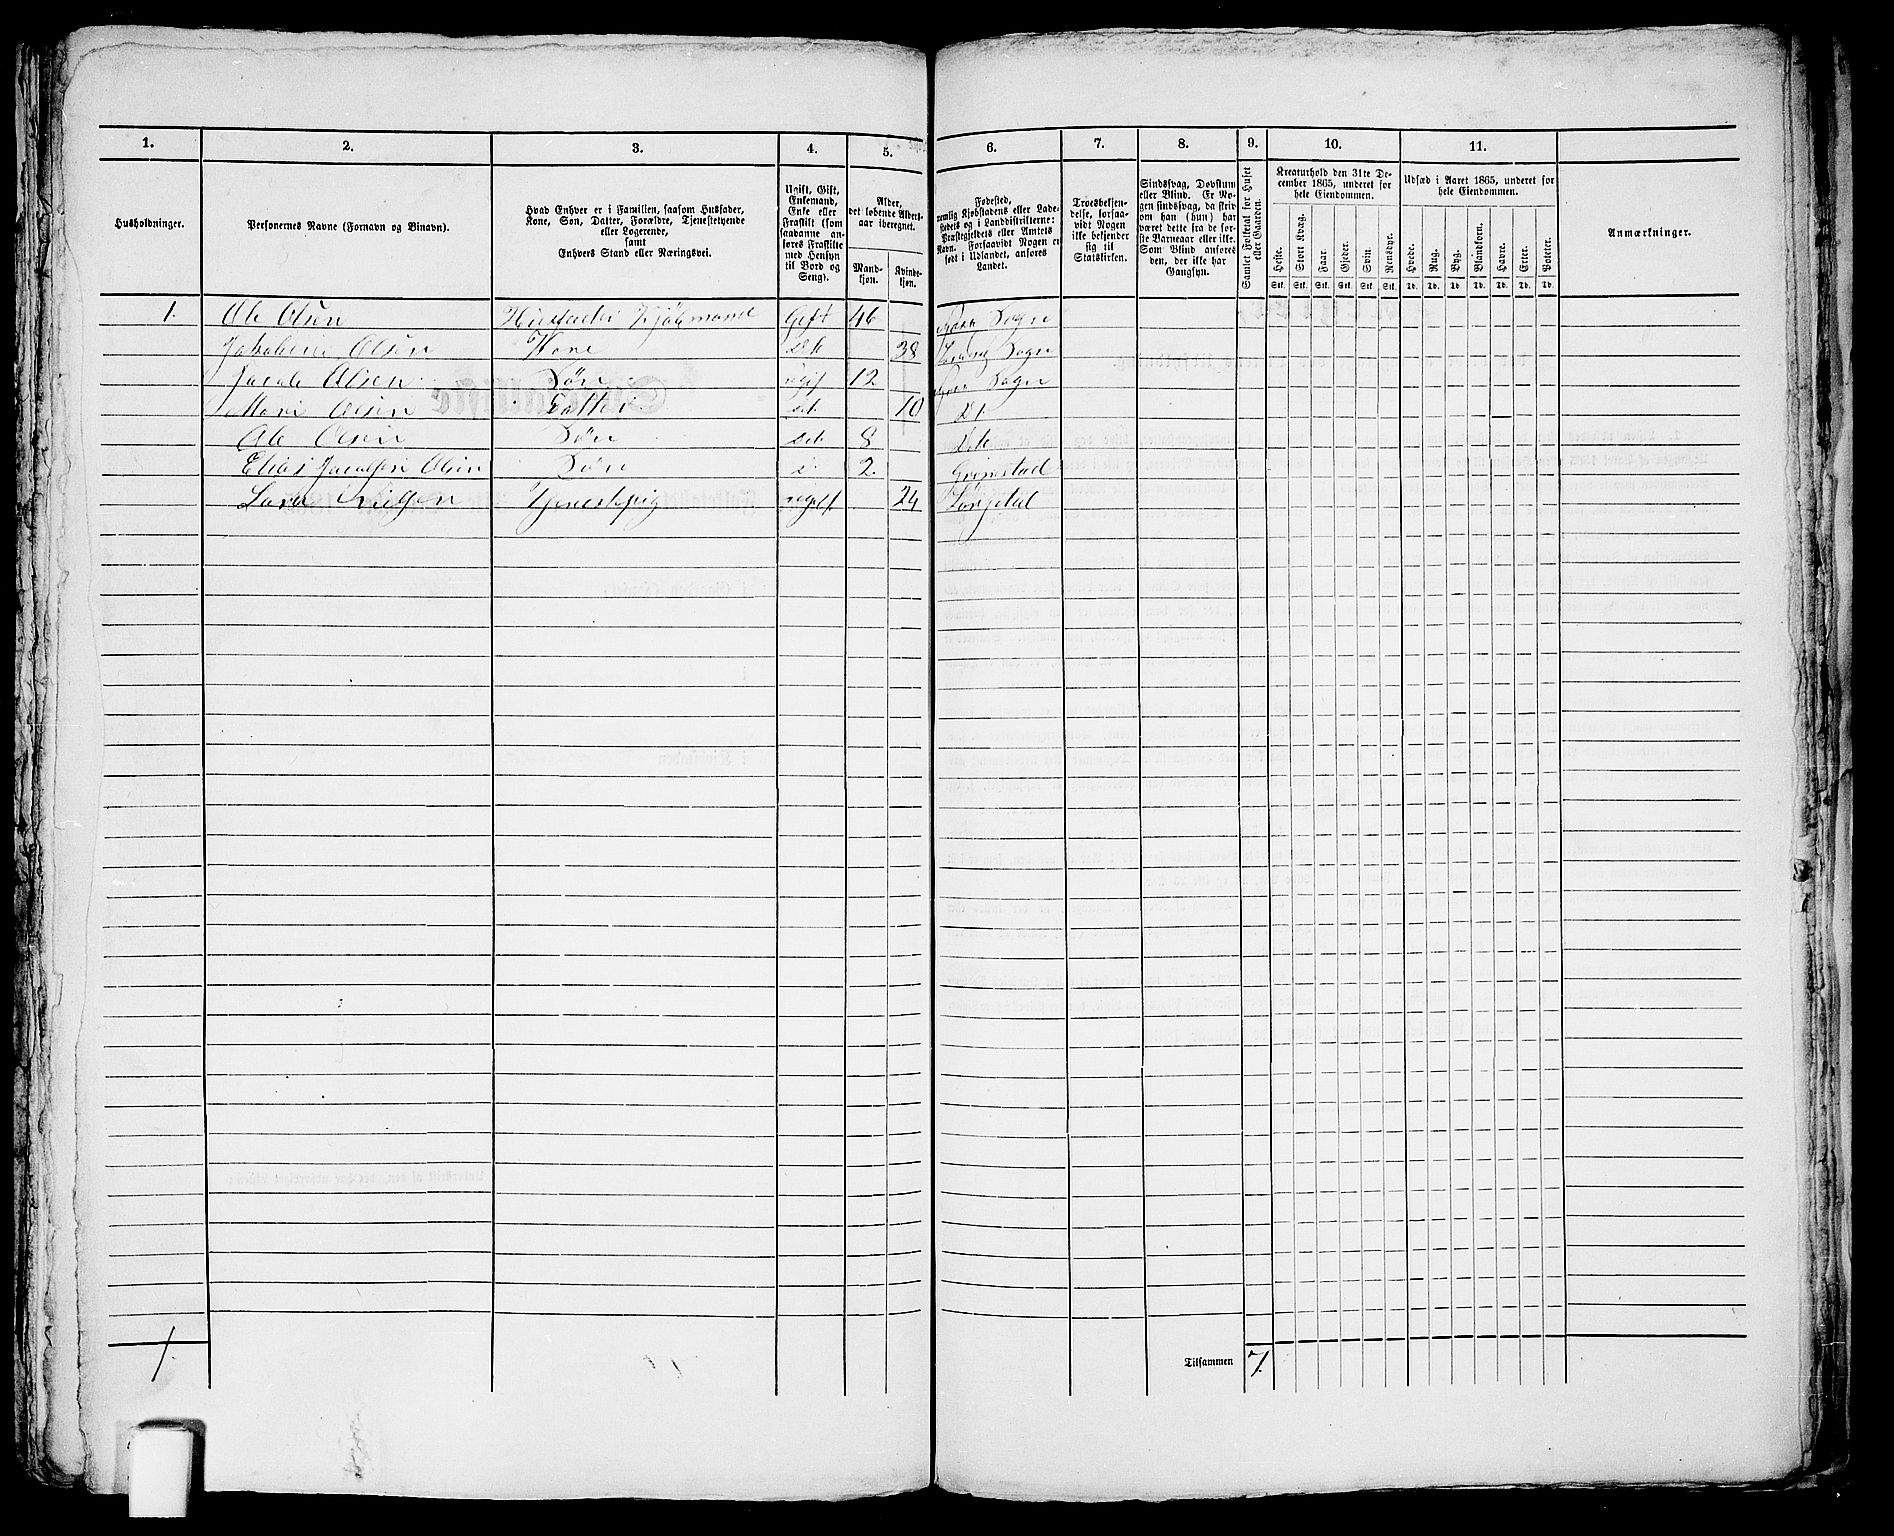 1. 2. 3. 4. 5. 6. 7. 8. 9. 10. 11.
Husholdninger.
Personernes Navne (Fornavn og Binavn).
Hvad Enhver er i Familien, saasom Husfader,
Kone, Søn, Datter, Forældre, Tjenestetyende
eller Logerende,
samt
Enhvers Stand eller Næringsvei.
Ugift, Gift,
Enkemand,
Enke eller
Fraskilt (som
saadanne an-
føres Fraskilte
med Hensyn
til Bord og
Seng).
Alder,
det løbende Alders-
aar iberegnet.
Mand-
kjøn.
Kvinde-
kjøn.
Fødested,
nemlig Kjøbstadens eller Lade-
stedets og i Landdistrikterne:
Præstegjeldets eller Amtets
Navn. Forsaavidt Nogen er
født i Udlandet, anføres
Landet.
Troesbekjen-
delse, forsaa-
vidt Nogen
ikke bekjender
sig til
Statskirken.
Sindssvag, Døvstum
eller Blind. Er No-
gen sindssvag, da skriv
om han (hun) har
været dette fra de før-
ste Barneaar eller ikke.
Som Blind anføres
den, der ikke har
Gangsyn.
Samlet Folketal for Huset
eller Gaarden.
Kreaturhold den 31te De-
cember 1865, underet for
hele Eiendommen.
Heste. Stort Kvæg. Faar. Gjeder. Svin. Rensdyr.
Stk. Stk. Stk. Stk. Stk. Stk.
Udsæd i Aaret 1865, underet for
hele Eiendommen.
Hvede. Rug. Byg. Blandkorn. Havre. Erter. Poteter.
Td. Td. Td. Td. Td. Td. Td.
Anmærkninger.
1. Ole Olsen Husfader Gift 46 Sogn
Olsen Kone Dt. 38 Sogn
Jacob Olsen Søn ugift 12 Sogn
Mari Olsen Datter Dt. 10 Dt.
Ole Olsen Søn Dt. 8 Dt.
Elias Jacobsen Olsen Søn 2. Grimstad
Tjenestepige ugift 24
1. Tilsammen 7.